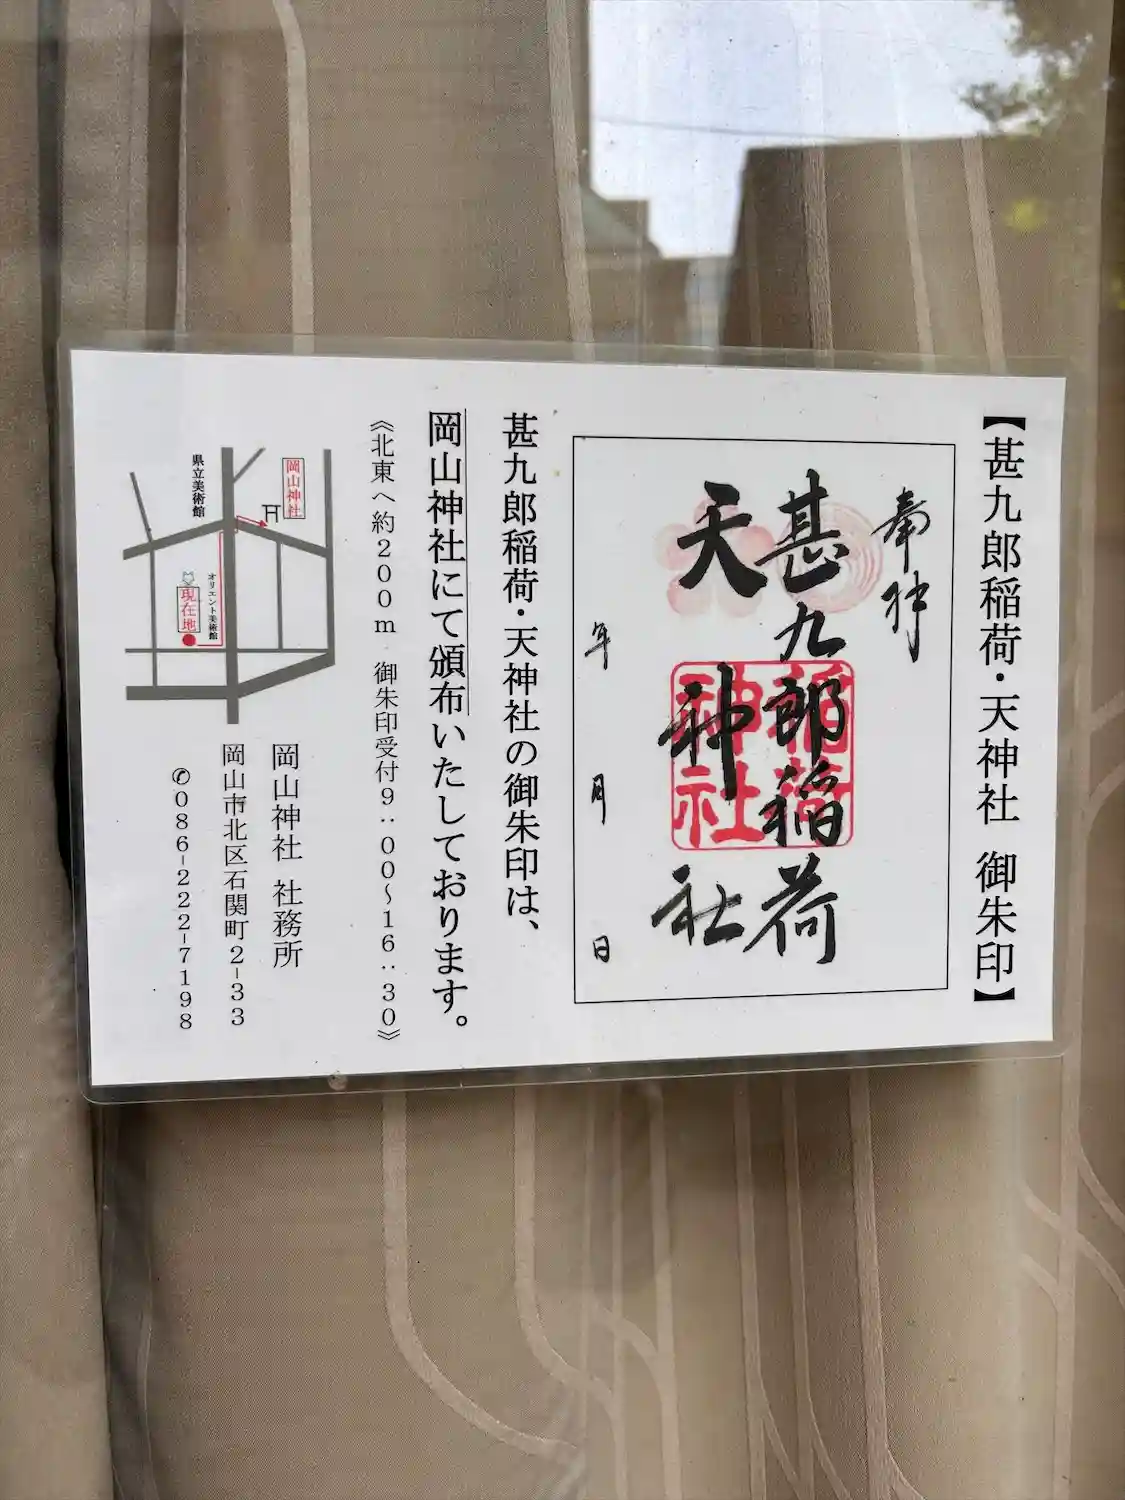 【甚九郎稲荷・天神社 御朱印】
奉拝
甚九郎稲荷
天神社
稲荷
神社
年 月 日
甚九郎稲荷・天神社の御朱印は、
岡山神社にて頒布いたしております。
《北東へ約200m 御朱印受付9:00~16:30》
岡山神社
県立美術館
オリエント美術館
現在地
岡山神社 社務所
岡山市北区石関町2-33
✆086-222-7198